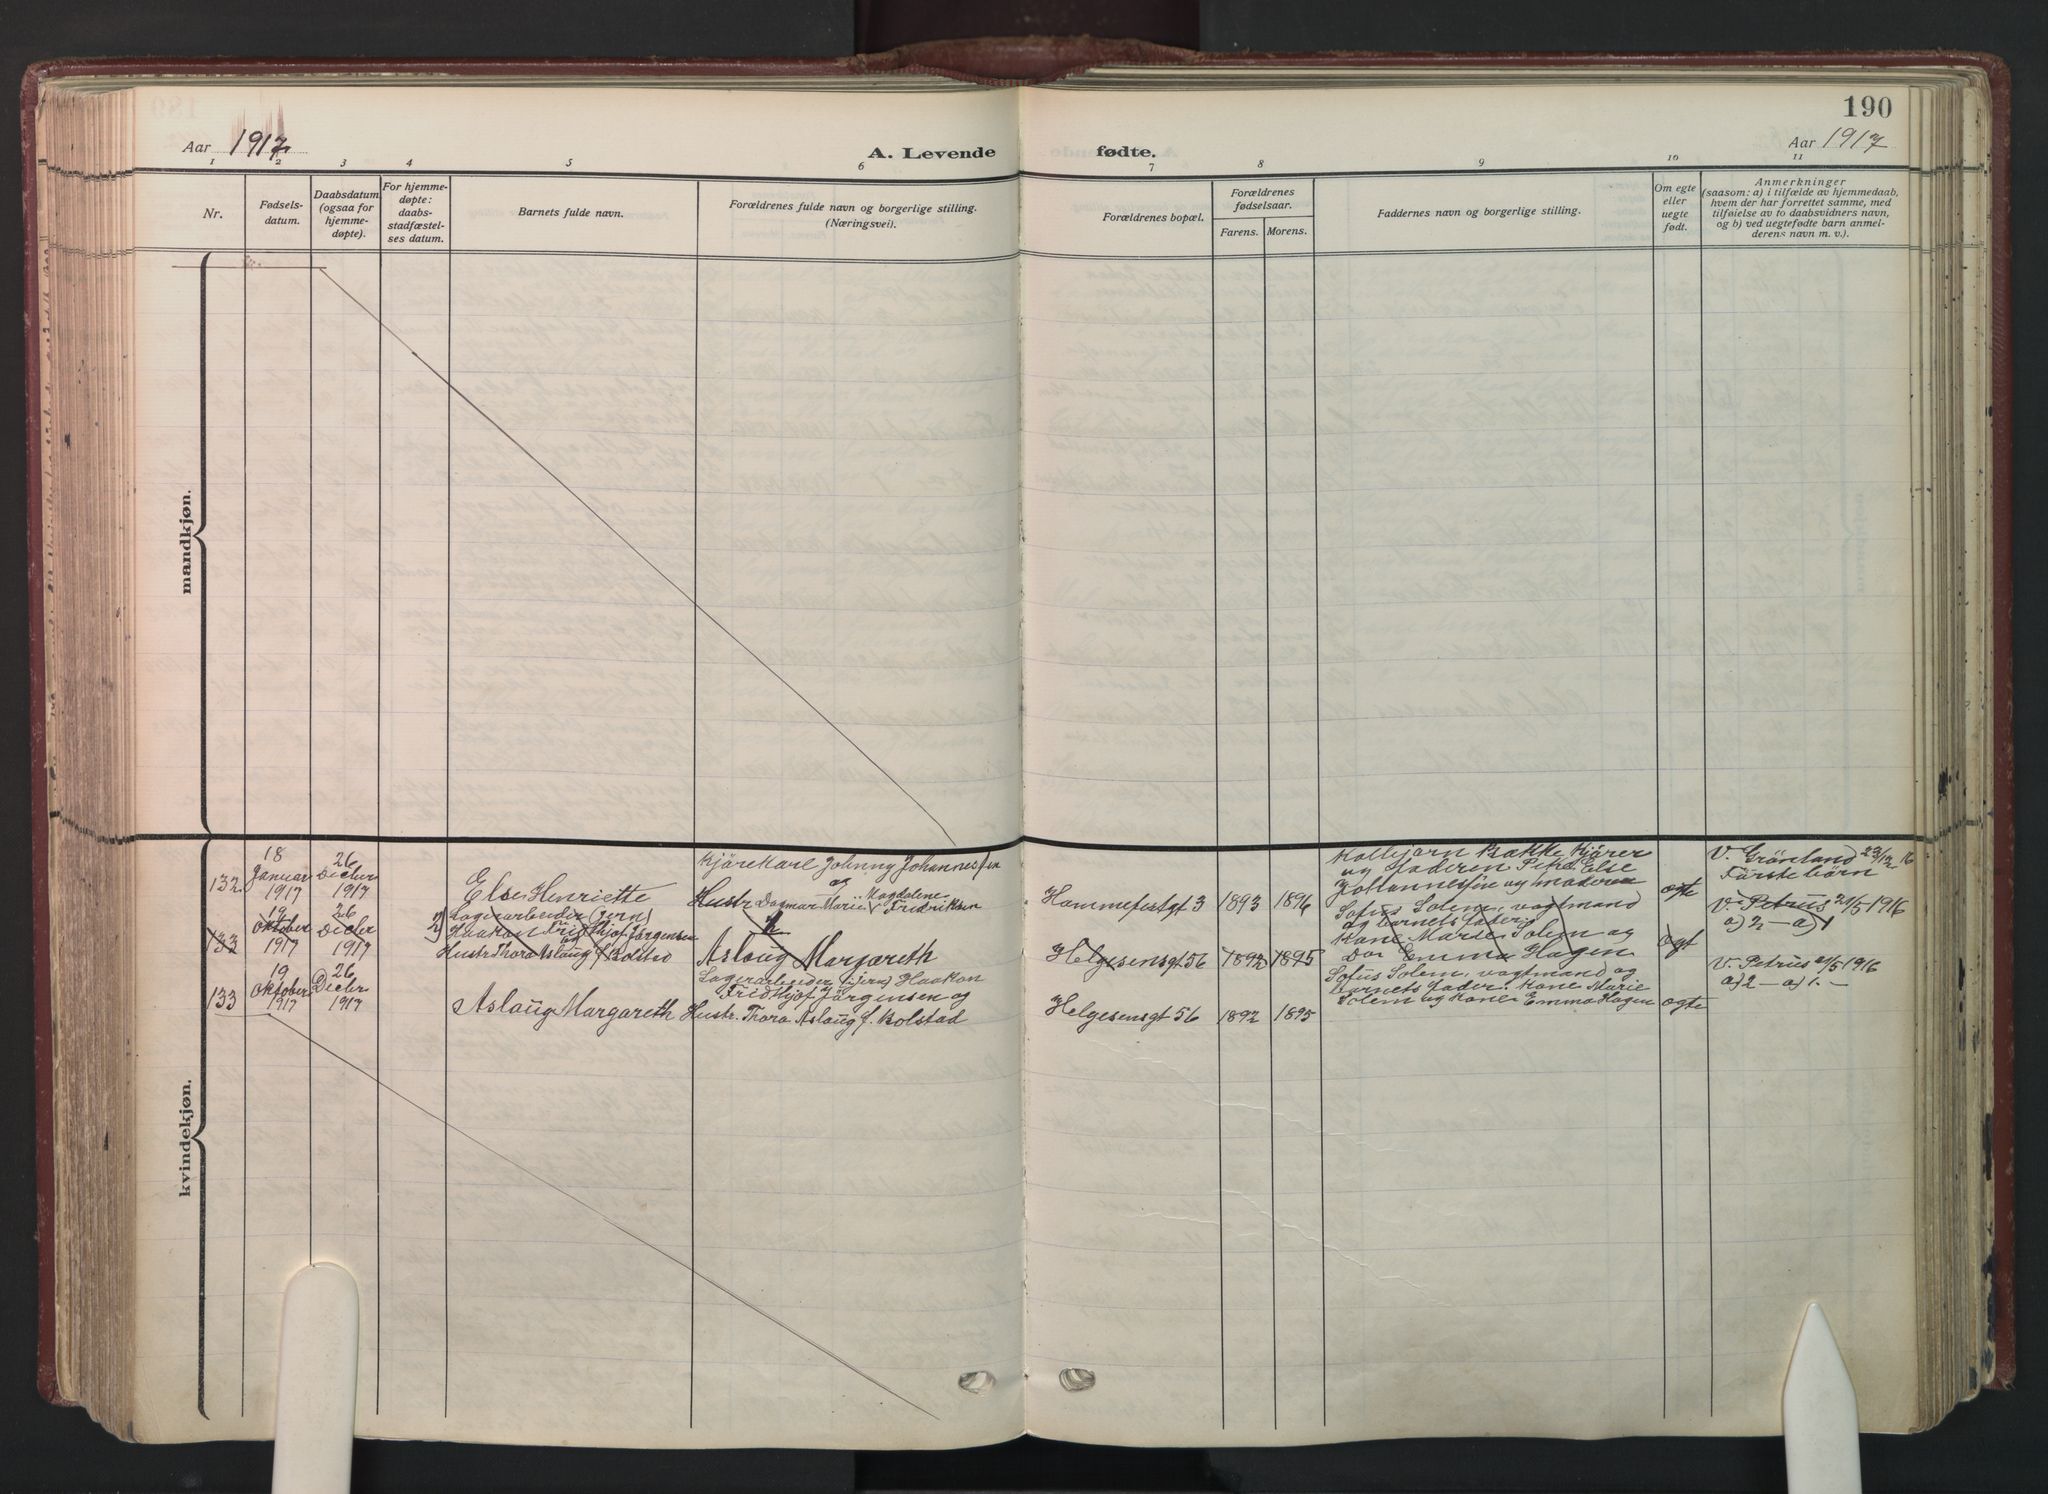 190
Aar 1917
A. Levende fødte.
Aar 1917
1 2 3 4 5 6 7 8 9 10 11
Nr.
Fødsels-
datum.
Daabsdatum
(ogsaa for
hjemme-
døpte).
For hjemme-
døpte:
daabs-
stadfæstel-
ses datum.
Barnets fulde navn.
Forældrenes fulde navn og borgerlige stilling.
(Næringsvei).
Forældrenes bopæl.
Forældrenes
fødselsaar.
Farens. Morens.
Faddernes navn og borgerlige stilling.
Om egte
eller
uegte
født.
Anmerkninger
(saasom: a) i tilfælde av hjemmedaab,
hvem der har forrettet samme, med
tilføielse av to daabsvidners navn,
og b) ved uegtefødte barn anmel-
derens navn m. v.).
mandkjøn.
kvindekjøn.
132
18
Januar
1917
26
Decbr
1917
Else Henriette
Kjörekarl Johnny Johannessen
og
Hustr Dagmar Marie Magdelene Fredriksen
Hammefestgt 3
1893
1896
Kolbjørn Bække Kjører
og Faderen Petra Else
Johannessen og moderen
egte
V. Grönland 23/12 16
Förstebörn
133
19
Oktober
1917
26
Decbr
1917
2)
Lagerarbeider (jern)
Haakon Fridthjof Jörgensen
og
Hustr Thora Aslaug f. Kolstad
Aslaug Margareth
Helgesensgt 56
1892
1895
Sofus Solem, vagtmand
og barnets fader.
Kone Marie Solem og
Do Emma Hagen
egt
V. Petrus 21/5 1916
a) 2 – a) 1
133
19
Oktober
1917
26
Decbr
1917
Aslaug Margareth
Lagerarbeider (jern) Haakon
Fridthjof Jörgensen og
Hustr. Thora Aslaug f. Kolstad
Helgesensgt 56
1892
1895
Sofus Solem, vagtmand og
barnets fader. Kone Marie
Solem og Kone Emma Hagen
egte
V. Petrus 21/5 1916
a) 2 – a) 1. –